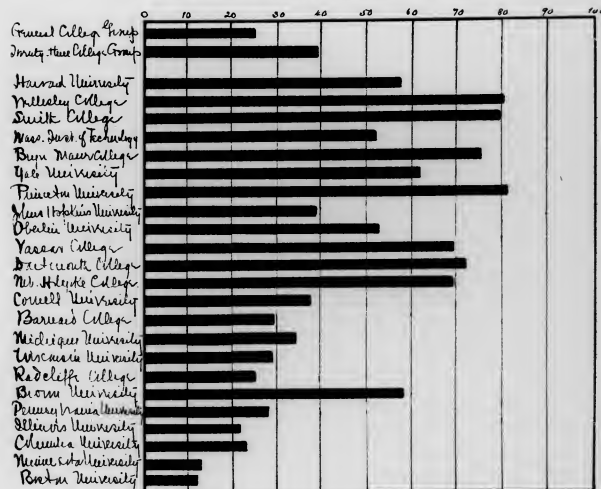 0 10 20 30 40 50 60 70 80 90 100
General College Group
Twenty three College Group
Harvard University
Wellesley College
Smith College
Mass. Inst. of Technology
Bryn Mawr College
Yale University
Princeton University
Johns Hopkins University
Oberlin University
Vassar College
Dartmouth College
Mt. Holyoke College
Cornell University
Barnard College
Michigan University
Wisconsin University
Radcliffe College
Brown University
Pennsylvania University
Illinois University
Columbia University
Minnesota University
Boston University